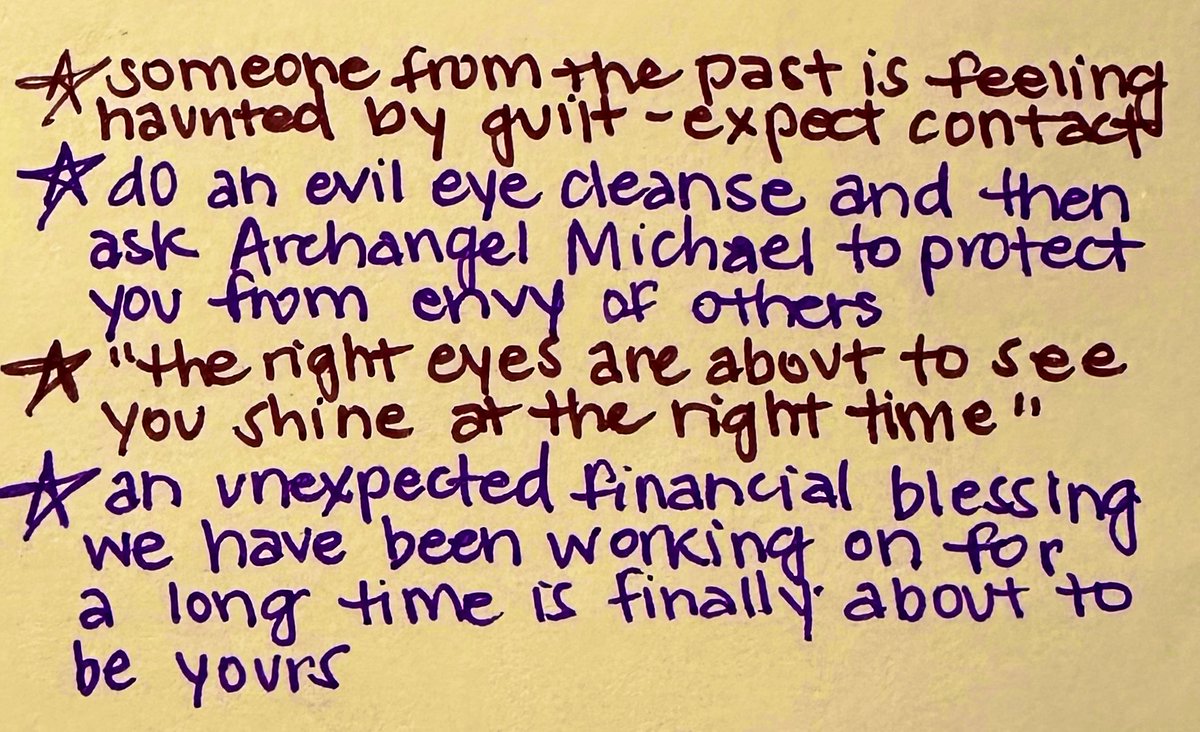 ☆ someone from the past is feeling
haunted by guilt - expect contact
☆ do an evil eye cleanse and then
ask Archangel Michael to protect
you from envy of others
☆ "the right eyes are about to see
you shine at the right time"
☆ an unexpected financial blessing
we have been working on for
a long time is finally about to
be yours